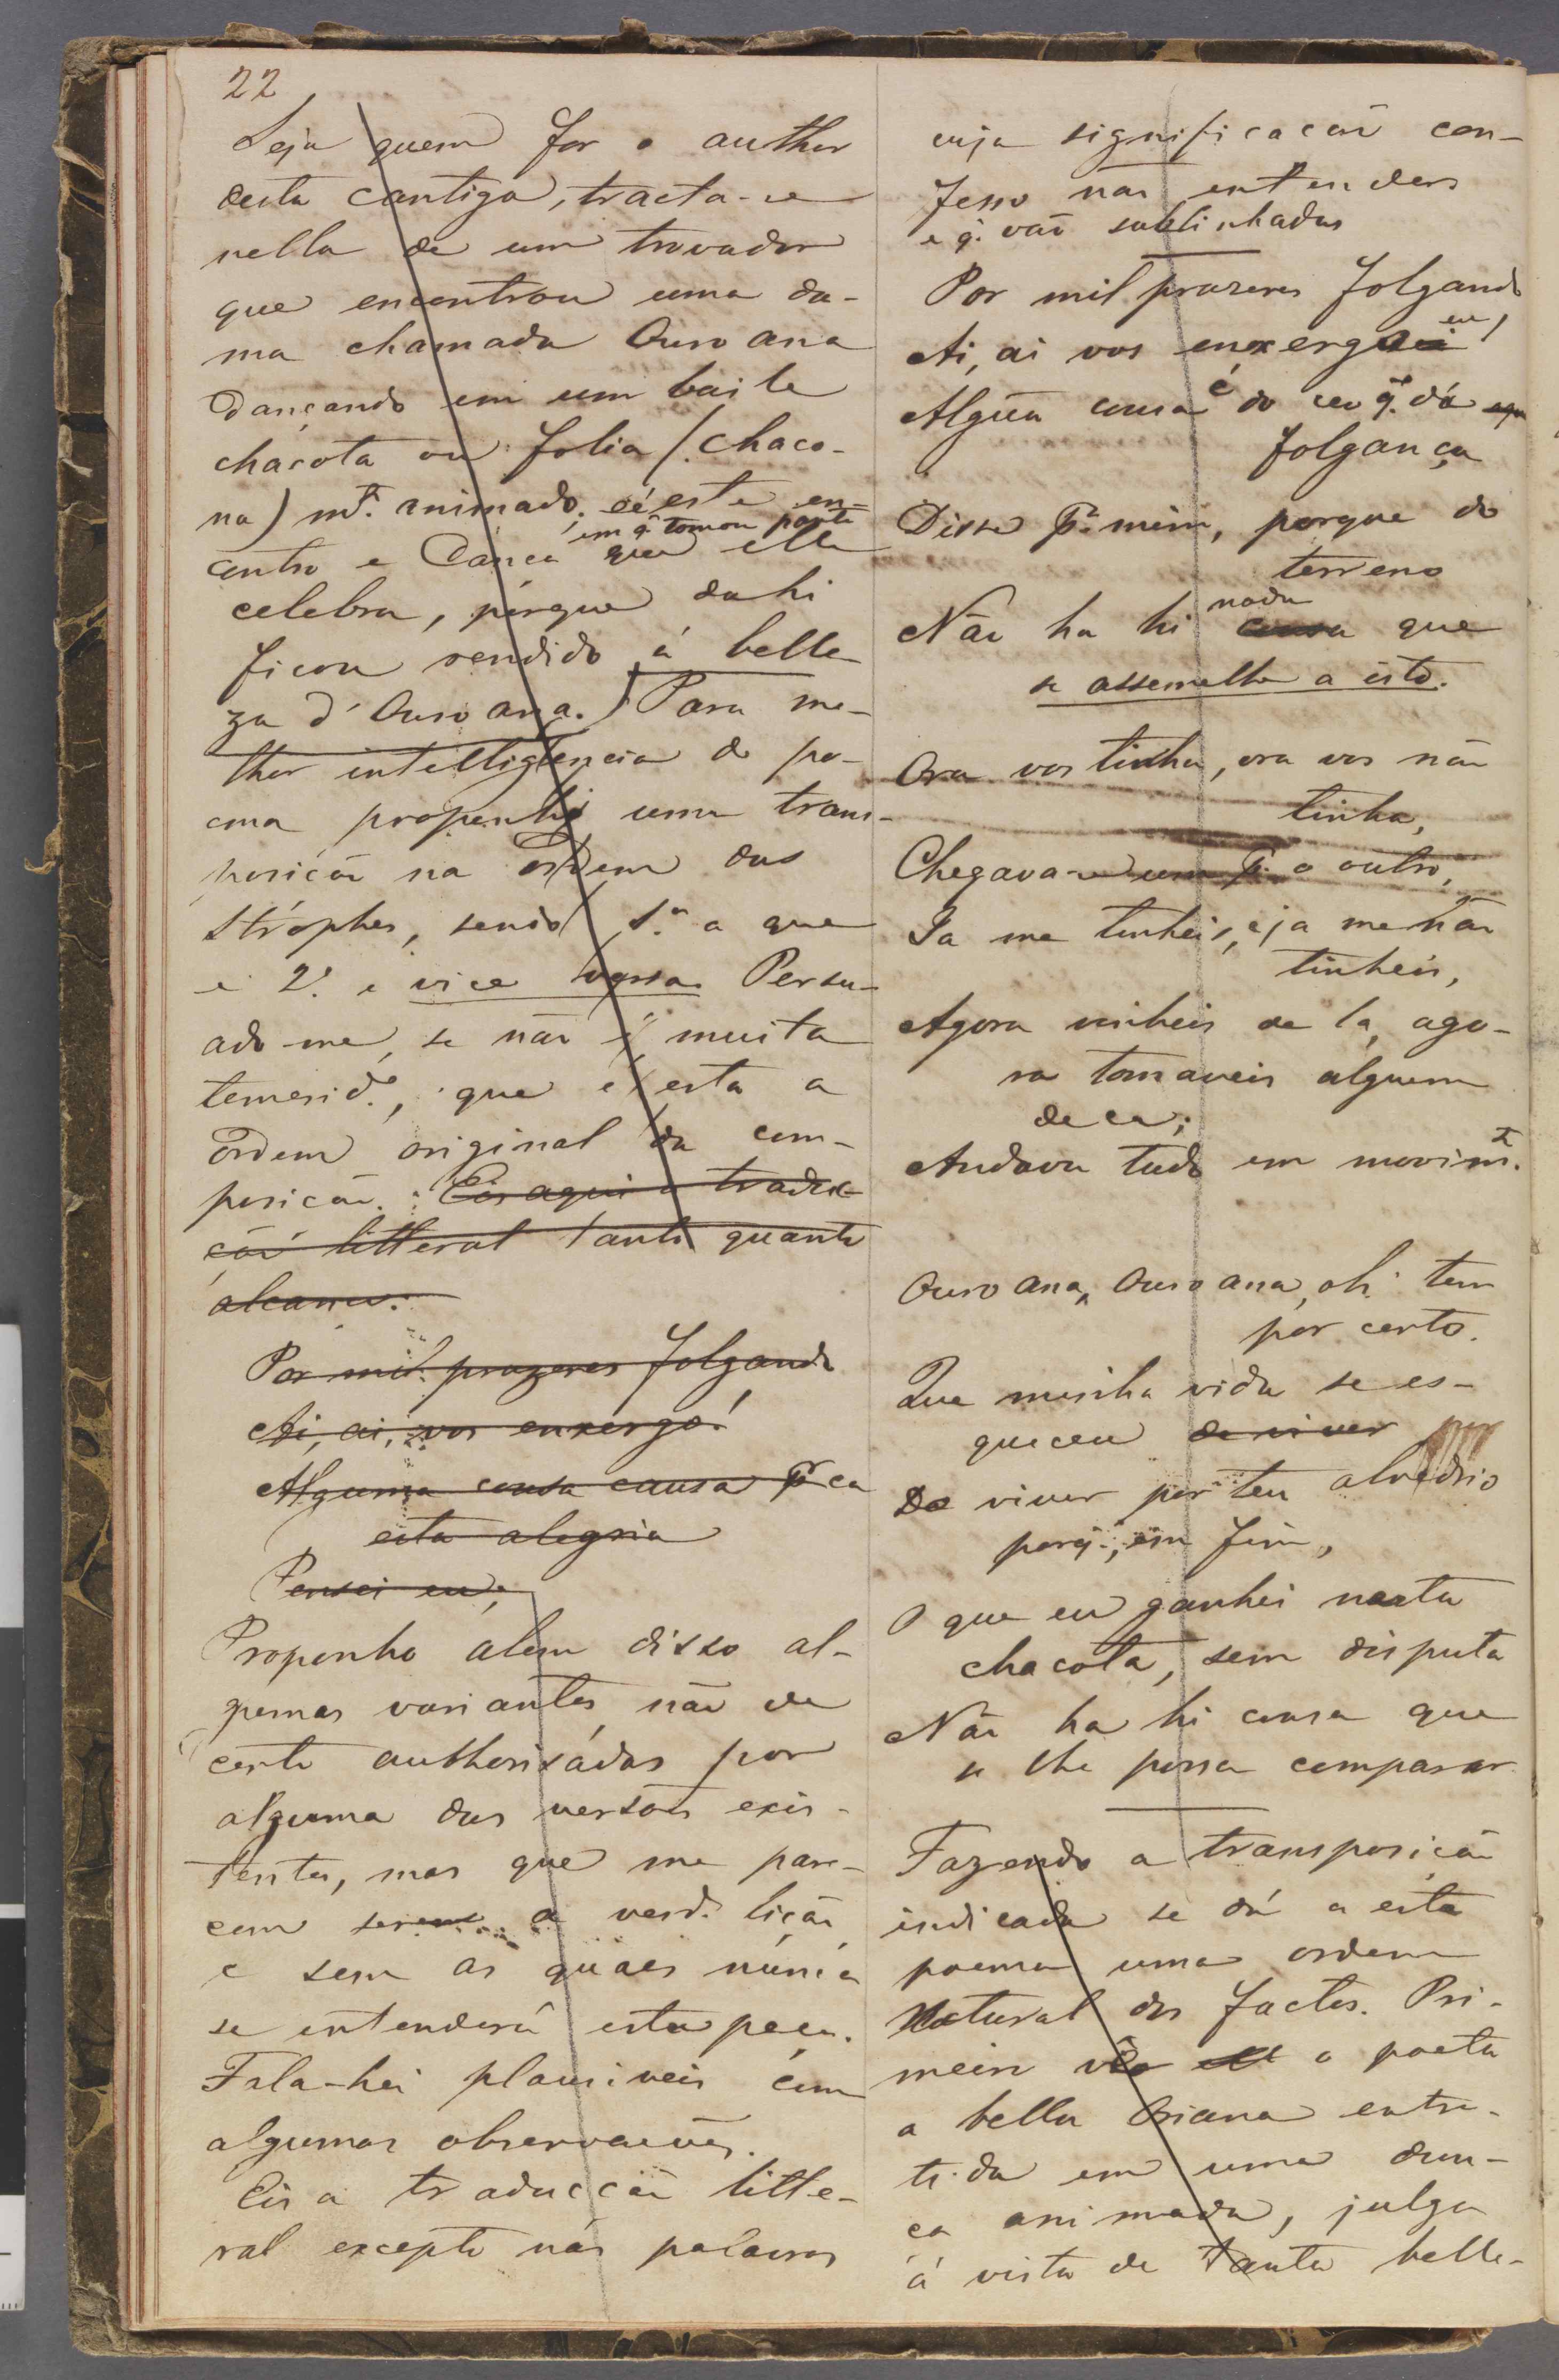 22
Seja quem for o author
desta cantiga, tracta-se
nella de um trovador
que encontrou uma da-
ma chamada Ouroana
dançando em um baile
chacota ou folia (chaco-
na) mt.º animado. é este en-
em q̃ tomou parte
contro e dança que elle
celebra, porque dahi
ficou rendido á belle
za d'Ouroana.) Para me-
lhor intelligencia do po-
ema proponho uma trans-
posição na ordem das
strophes, sendo 1.ª a que
é 2.ª e vice versa. Persu-
ado-me, se não é muita
temerid.e, que é esta a
ordem original da com-
posição. Eis aqui a traduc-
ção litteral tanto quanto
alcanço:
Por mil prazeres folgando
Ai, ai, vos enxergo!
Alguma cousa causa pr ca
esta alegria
Pensei eu;
Proponho alem disso al-
gumas variantes não de
certo authorisadas por
alguma das versões exis-
tentes, mas que me pare-
cem serem a verd.ª lição
e sem as quaes nunca
se entenderá esta peça.
Fala-hei plausiveis com
algumas observações.
Eis a traducção litte-
ral excepto nas palavras
cuja significação con-
fesso não entender
e q. vão sublinhadas
Por mil prazeres folgando
eu
Ai, ai vos enxergei!
Algũa cousa é do ceo q. dá
folgança
Disse p.ª mim, porque do
terreno
nada
Não ha hi cousa que
se assemelhe a isto.
Ora vos tinha, ora vos não
tinha,
Chegava-se um p.ª o outro,
Ja me tinheis, e ja me não
tinheis,
Agora vinheis de la, ago-
ra tomaveis alguem
de ca;
Andava tudo em movimt.
Ouroana, Ouroana, oh! tem
por certo.
Que minha vida se es-
queceu de viver por
De viver por teu alvedrio
porq., em fim,
O que eu ganhei nesta
chacota, sem disputa
Não ha hi cousa que
se lhe possa comparar
Fazendo a transposição
indicada se dá a este
poema uma ordem
natural dos factos. Pri-
meiro vê o poeta
a bella Oriana entre-
tida em uma dan-
ça animada, julga
á vista de tanta belle-